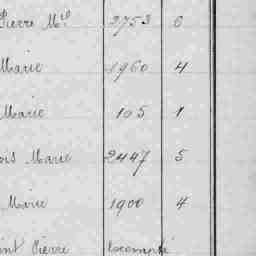 Pierre Mel 2753 0
Marie 1960 4
Marie 105 1
ois Marie 2447 5
Marie 1900 4
int Pierre